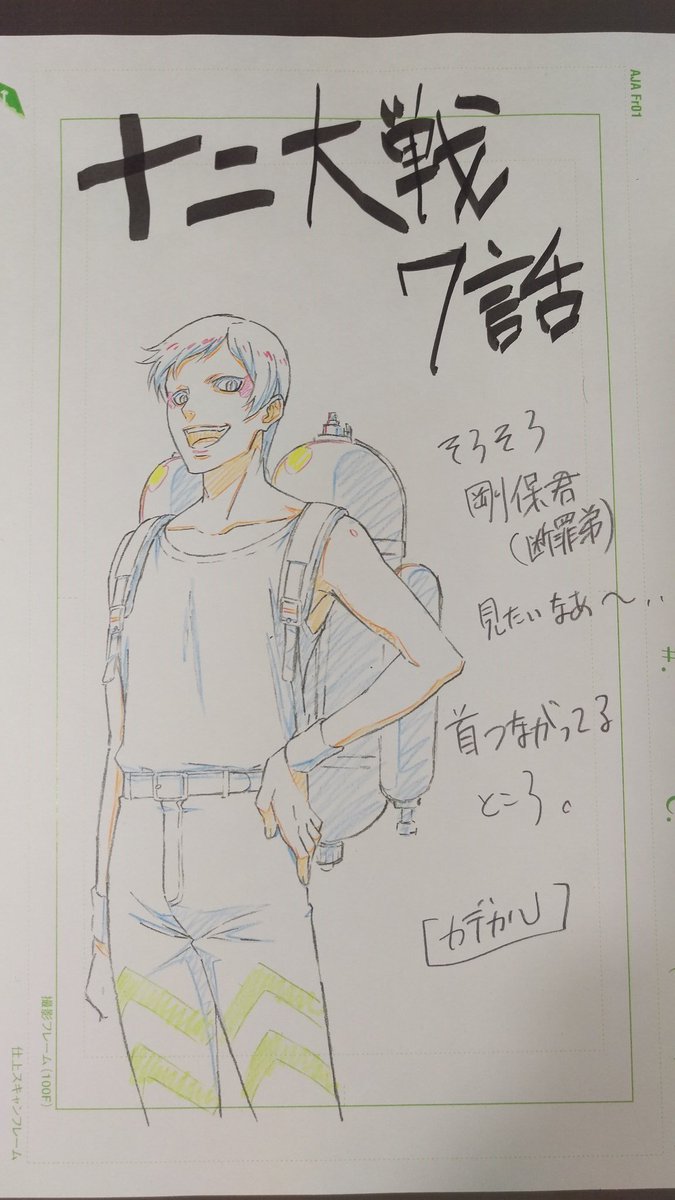 十二大戦
7話
そろそろ
剛保君
(断罪弟)
見たいなあ〜..
首つながってる
ところ。
[カデカル]
AJA Fr01
#.
C.
撮影フレーム(100F)
仕上スキャンフレーム